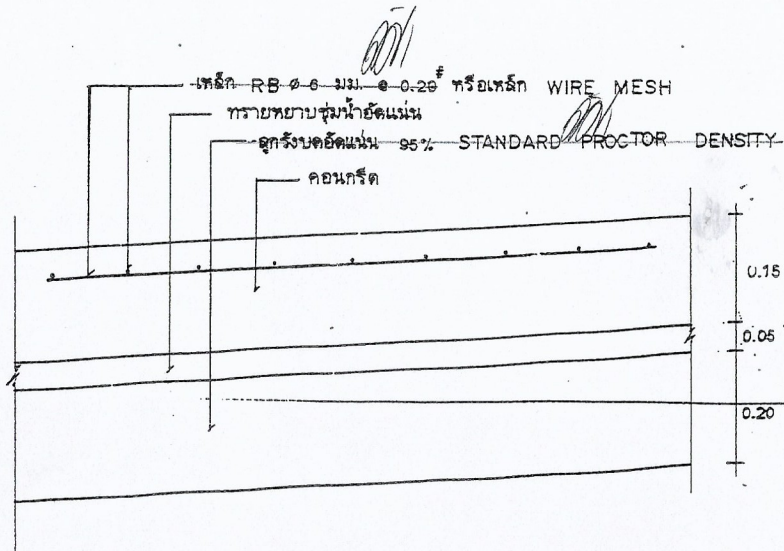 เหล็ก RB Ø 6 มม. @ 0.20# หรือเหล็ก WIRE MESH
ทรายหยาบชุ่มน้ำอัดแน่น
ลูกรังบดอัดแน่น 95% STANDARD PROCTOR DENSITY
คอนกรีต
0.15
0.05
0.20